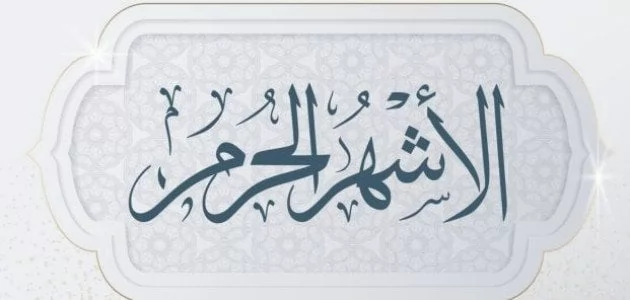 الأشْهُرُ الحُرُم